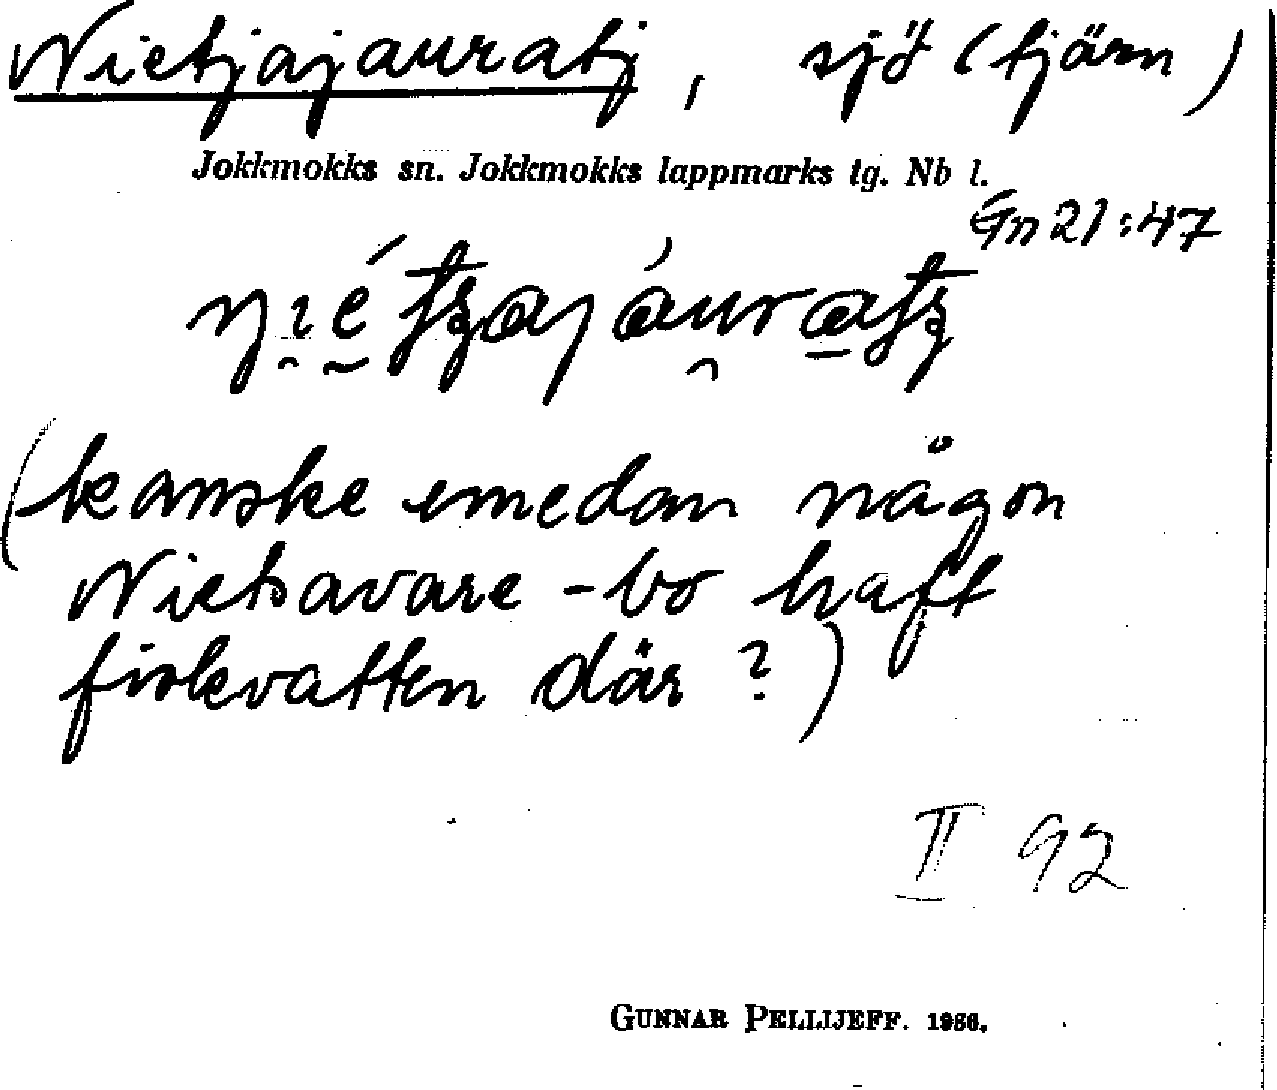 Nietjajauratj, sjö (tjärn)
Jokkmokks sn. Jokkmokks lappmarks tg. Nb l.
Gn 21:47
(kanske emedan någon
Nietsavare-bo haft
fiskvatten där?)
II 92
GUNNAR PELLIJEFF. 1986.